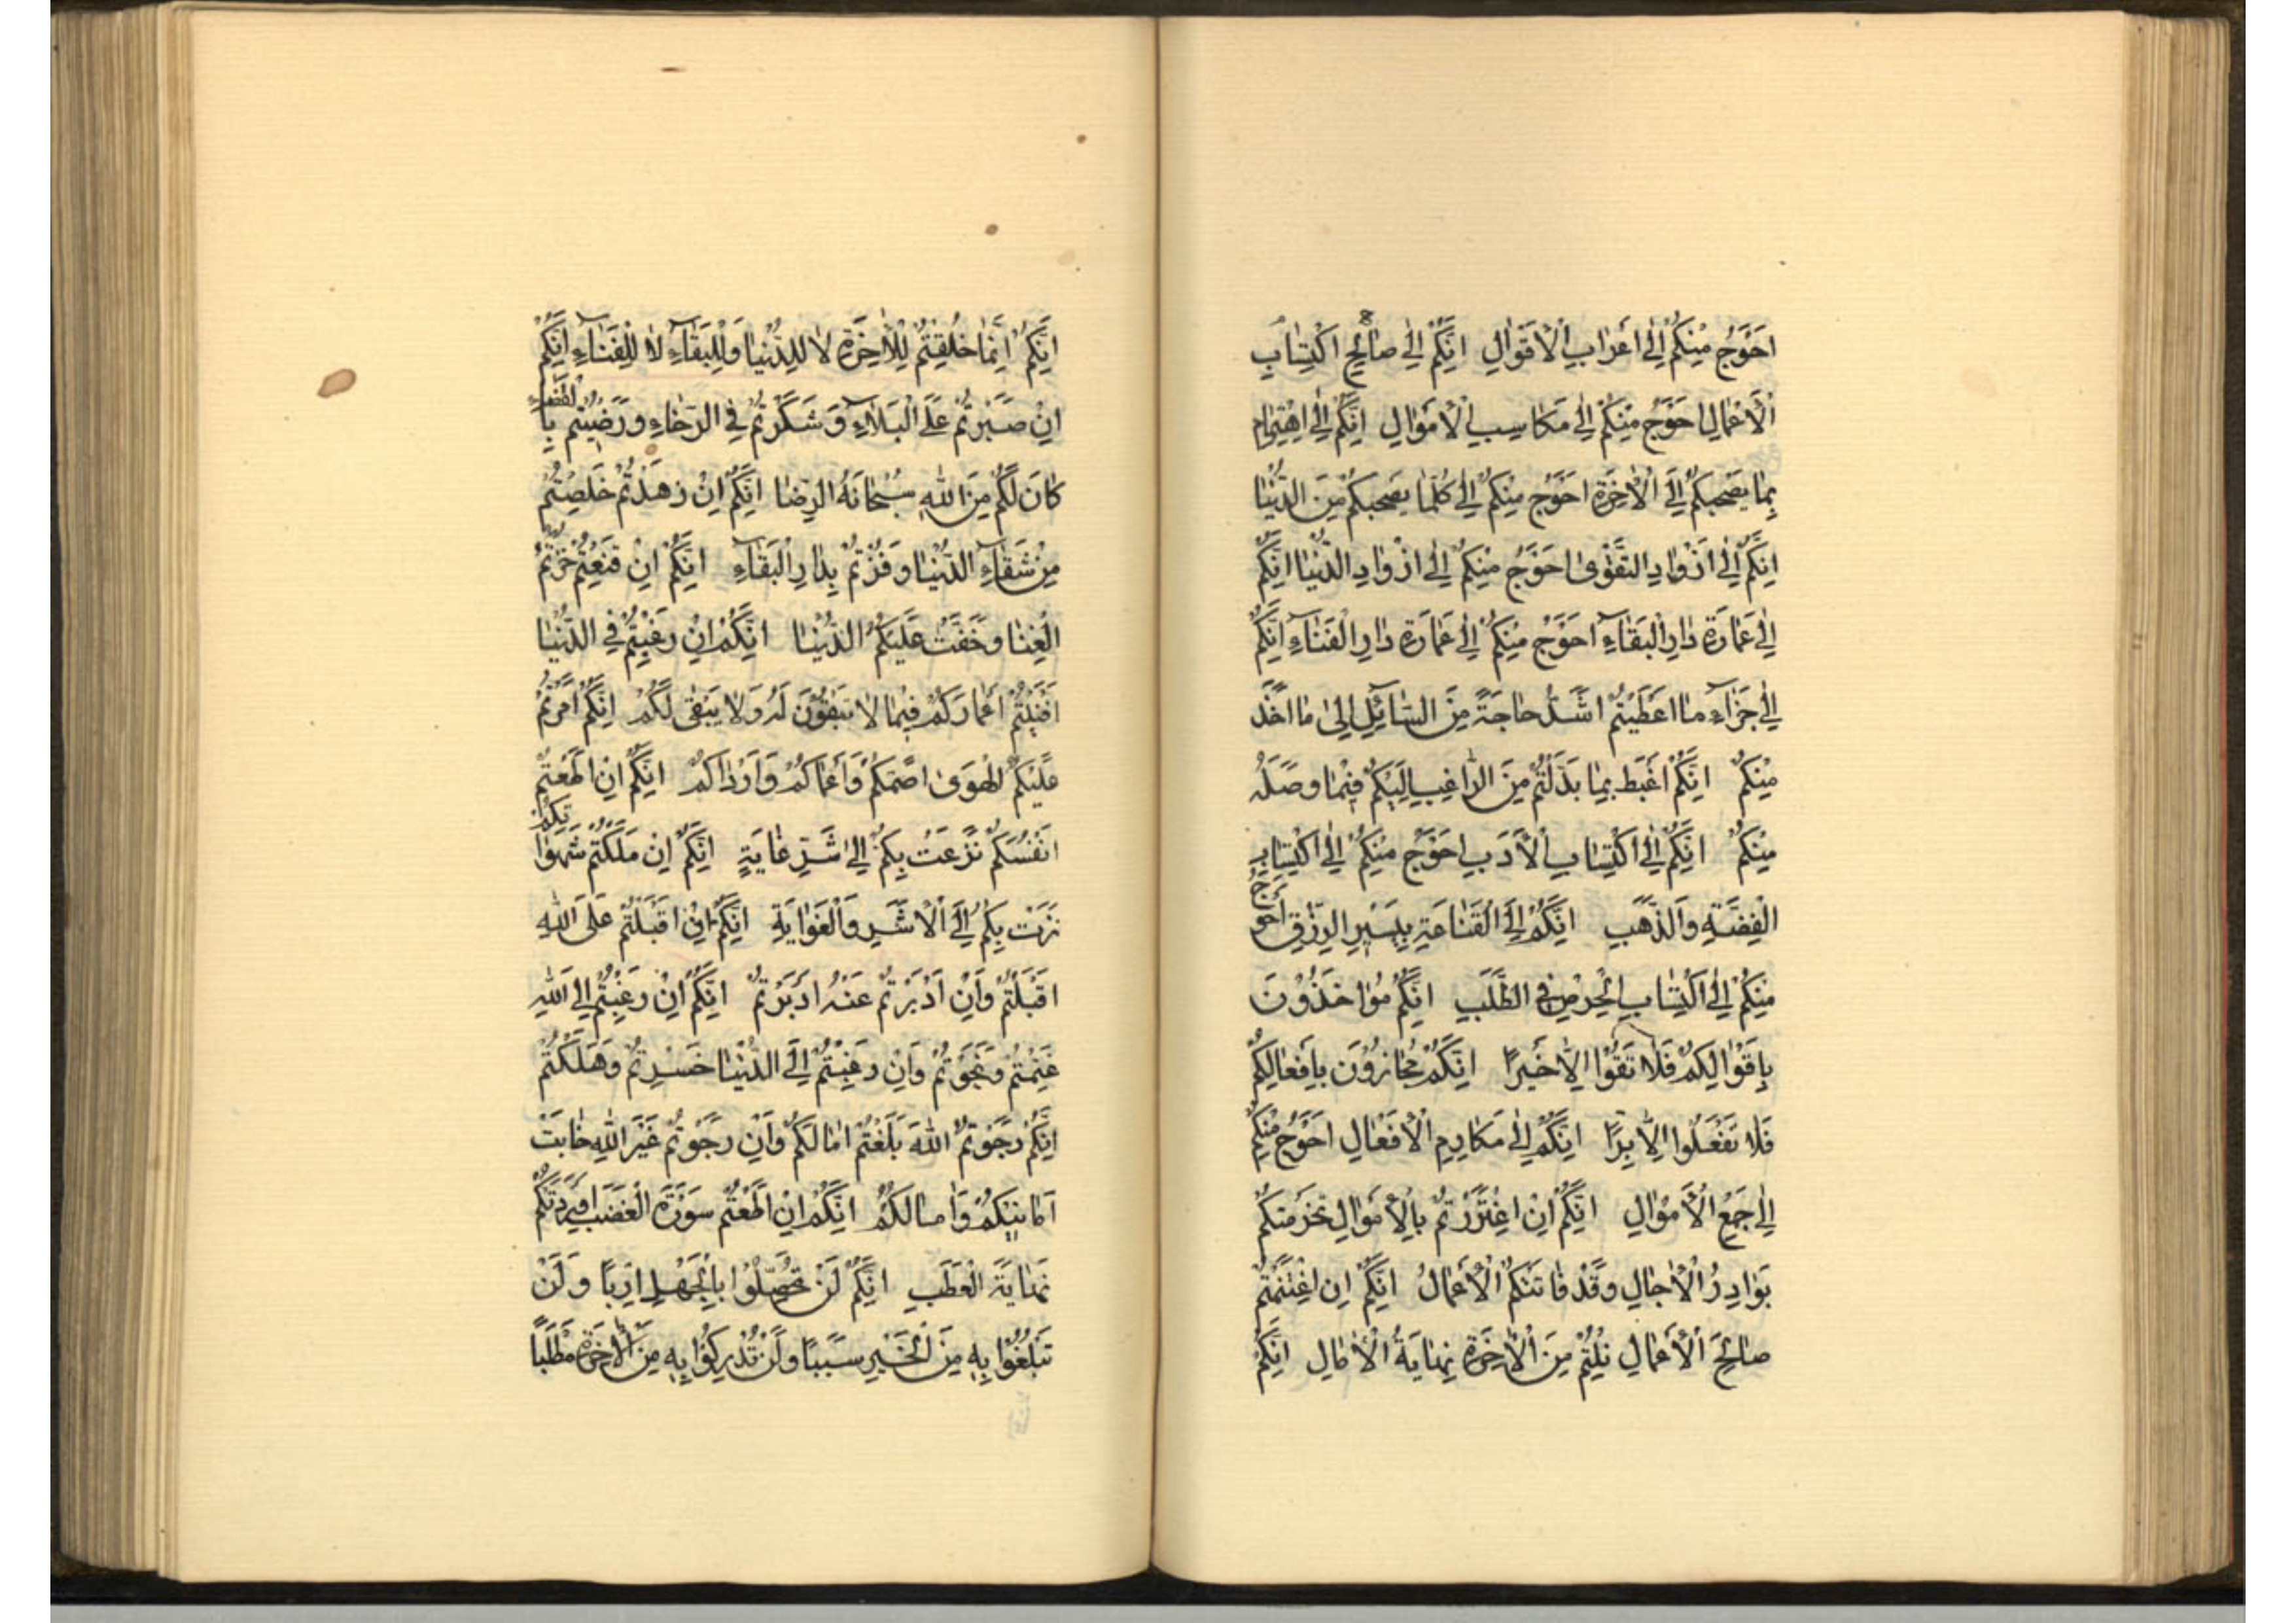 احَوَجُ مِنْكُمْ اِلٰى اَعْرَابِ الْاَقْوَالِ اِنَّكُمْ اِلٰى صَالِحِ اكْتِسَابِ
الْاَعْمَالِ احَوَجُ مِنْكُمْ اِلٰى مَكَاسِبِ الْاَمْوَالِ اِنَّكُمْ اِلٰى اهْتِمَامِ
بِمَا يَصْحَبُكُمْ اِلَى الْاٰخِرَةِ احَوَجُ مِنْكُمْ اِلٰى كُلَّمَا يَصْحَبُكُمْ مِنَ الدُّنْيَا
اِنَّكُمْ اِلٰى اَزْوَادِ التَّقْوٰى احَوَجُ مِنْكُمْ اِلٰى ازْوَادِ الدُّنْيَا اِنَّكُمْ
اِلٰى عَمَارَةِ دَارِ الْبَقَاۤءِ احَوَجُ مِنْكُمْ اِلٰى عَمَارَةِ دَارِ الْفَنَاۤءِ اِنَّكُمْ
اِلٰى جَزَاۤءِ مَا اعْطَيْتُمْ اشَدُّ حَاجَةً مِنَ السَّاۤئِلِ اِلٰى مَا اخَذَ
مِنْكُمْ اِنَّكُمْ اغْبَطُ بِمَا بَذَلْتُمْ مِنَ الرَّاغِبِ اِلَيْكُمْ فِيْمَا وَصَلَهُ
مِنْكُمْ اِنَّكُمْ اِلٰى اكْتِسَابِ الْاَدَبِ احَوَجُ مِنْكُمْ اِلٰى اكْتِسَابِ
الْفِضَّةِ وَالذَّهَبِ اِنَّكُمْ اِلَى الْقَنَاعَةِ بِيَسِيْرِ الرِّزْقِ احَوَجُ
مِنْكُمْ اِلٰى اكْتِسَابِ الْحِرْصِ فِى الطَّلَبِ اِنَّكُمْ مُؤَاخَذُوْنَ
بِاَقْوَالِكُمْ فَلَا تَقُوْلُوْا اِلَّا خَيْرًا اِنَّكُمْ مُجَازَوْنَ بِاَفْعَالِكُمْ
فَلَا تَفْعَلُوا اِلَّا بِرًّا اِنَّكُمْ اِلٰى مَكَارِمِ الْاَفْعَالِ احَوَجُ مِنْكُمْ
اِلٰى جَمْعِ الْاَمْوَالِ اِنَّكُمْ اِنِ اغْتَرَرْتُمْ بِالْاَمْوَالِ تَخَرَّمَتْكُمْ
بَوَادِرُ الْاٰجَالِ وَقَدْ فَاتَتْكُمُ الْاَعْمَالُ اِنَّكُمْ اِنِ اغْتَنَمْتُمْ
صَالِحَ الْاَعْمَالِ نِلْتُمْ مِنَ الْاٰخِرَةِ نِهَايَةَ الْاٰمَالِ اِنَّكُمْ
اِنَّكُمْ اِنَّمَا خُلِقْتُمْ لِلْاٰخِرَةِ لَا لِلدُّنْيَا وَلِلْبَقَاۤءِ لَا لِلْفَنَاۤءِ اِنَّكُمْ
اِنْ صَبَرْتُمْ عَلَى الْبَلَاۤءِ وَشَكَرْتُمْ فِى الرَّخَاءِ وَرَضِيْتُمْ بِالْقَضَاءِ
كَانَ لَكُمْ مِنَ اللهِ سُبْحَانَهُ الرِّضَا اِنَّكُمْ اِنْ زَهَدْتُمْ خَلَصْتُمْ
مِنْ شَقَاۤءِ الدُّنْيَا وَفُزْتُمْ بِدَارِ الْبَقَاۤءِ اِنَّكُمْ اِنْ قَنَعْتُمْ حُزْتُمُ
الْغِنَا وَخَفَّتْ عَلَيْكُمُ الدُّنْيَا اِنَّكُمْ اِنْ رَغِبْتُمْ فِى الدُّنْيَا
اَفْنَيْتُمْ اَعْمَارَكُمْ فِيْمَا لَا تَبْقَوْنَ لَهُ وَلَا يَبْقٰى لَكُمْ اِنَّكُمْ اَمَّرْتُمْ
عَلَيْكُمُ الْهَوَىٰ اصَمَّكُمْ وَاَعْمَاكُمْ وَاَرْدَاكُمْ اِنَّكُمْ اِنْ اطَعْتُمْ
انْفُسَكُمْ نَزَعَتْ بِكُمْ اِلٰى شَرِّ غَايَةٍ اِنَّكُمْ اِنْ مَلَّكْتُمْ شَهَوَاتِكُمْ
نَزَتْ بِكُمْ اِلَى الْاَشَرِ وَالْغَوَايَةِ اِنَّكُمْ اِنْ اقْبَلْتُمْ عَلَى اللهِ
اقْبَلْتُمْ وَاِنْ اَدْبَرْتُمْ عَنْهُ ادْبَرْتُمْ اِنَّكُمْ اِنْ رَغِبْتُمْ اِلَى اللهِ
غَنِمْتُمْ وَنَجَوْتُمْ وَاِنْ رَغِبْتُمْ اِلَى الدُّنْيَا خَسِرْتُمْ وَهَلَكْتُمْ
اِنَّكُمْ رَجَوْتُمُ اللهَ بَلَغْتُمْ امَالَكُمْ وَاِنْ رَجَوْتُمْ غَيْرَ اللهِ خَابَتْ
اَمَانِيْكُمْ وَاٰمَالَكُمْ اِنَّكُمْ اِنْ اَطَعْتُمْ سَوْرَةَ الْغَضَبِ اَوْرَدَتْكُمْ
نِهَايَةَ الْعَطَبِ اِنَّكُمْ لَنْ تُحَصِّلُوْا بِالْجَهْلِ اَرَبًا وَلَنْ
تَبْلُغُوْا بِهِ مِنَ الْخَيْرِ سَبَبًا وَلَنْ تُدْرِكُوْا بِهِ مِنَ الْاٰخِرَةِ مَطْلَبًا